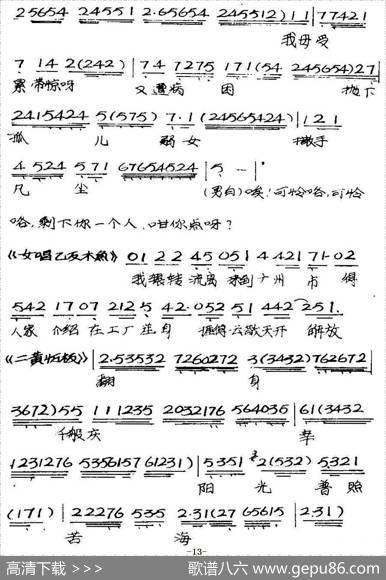 2 5654 24551 2·65654 245512) 1 1 | 77421
我母受
7 1 4 2 (242) | 7·4 7275 171 (54 245654) 27 |
累 带惊呀 又遭病 困 抛下
2415424 5 (575) 7·1 (24565424) | 1 2 1
孤 儿 弱 女 撒手
4 524 571 67654524 | 5 – – | '
凡 尘 (男白) 唉!可怜咯,可怜
咯,剩下你一个人,咁你点呀?
《女唱乙反木鱼》 01 2 2 45 051 4 421 71·02
我辗转 流离 来到 广州 市 得
542 17 07 212 5 42·052 51 442 251·
人家 介绍 在工厂 云散天开 解放
《二黄 》 | 2·53532 7260272 3 (3432) 762672 |
翻 身
3672) 55 111235 2032176 564035 | 61 (3432
千般庆 幸
1231276 5356157 61231) | 5351 2 (532) 5321
阳 光 普照
(171) | 22276 535 2·31 (27 65615 | 2·31)
苦 海
-13-
高清下载 >>>
歌谱八六 www.gepu86.com